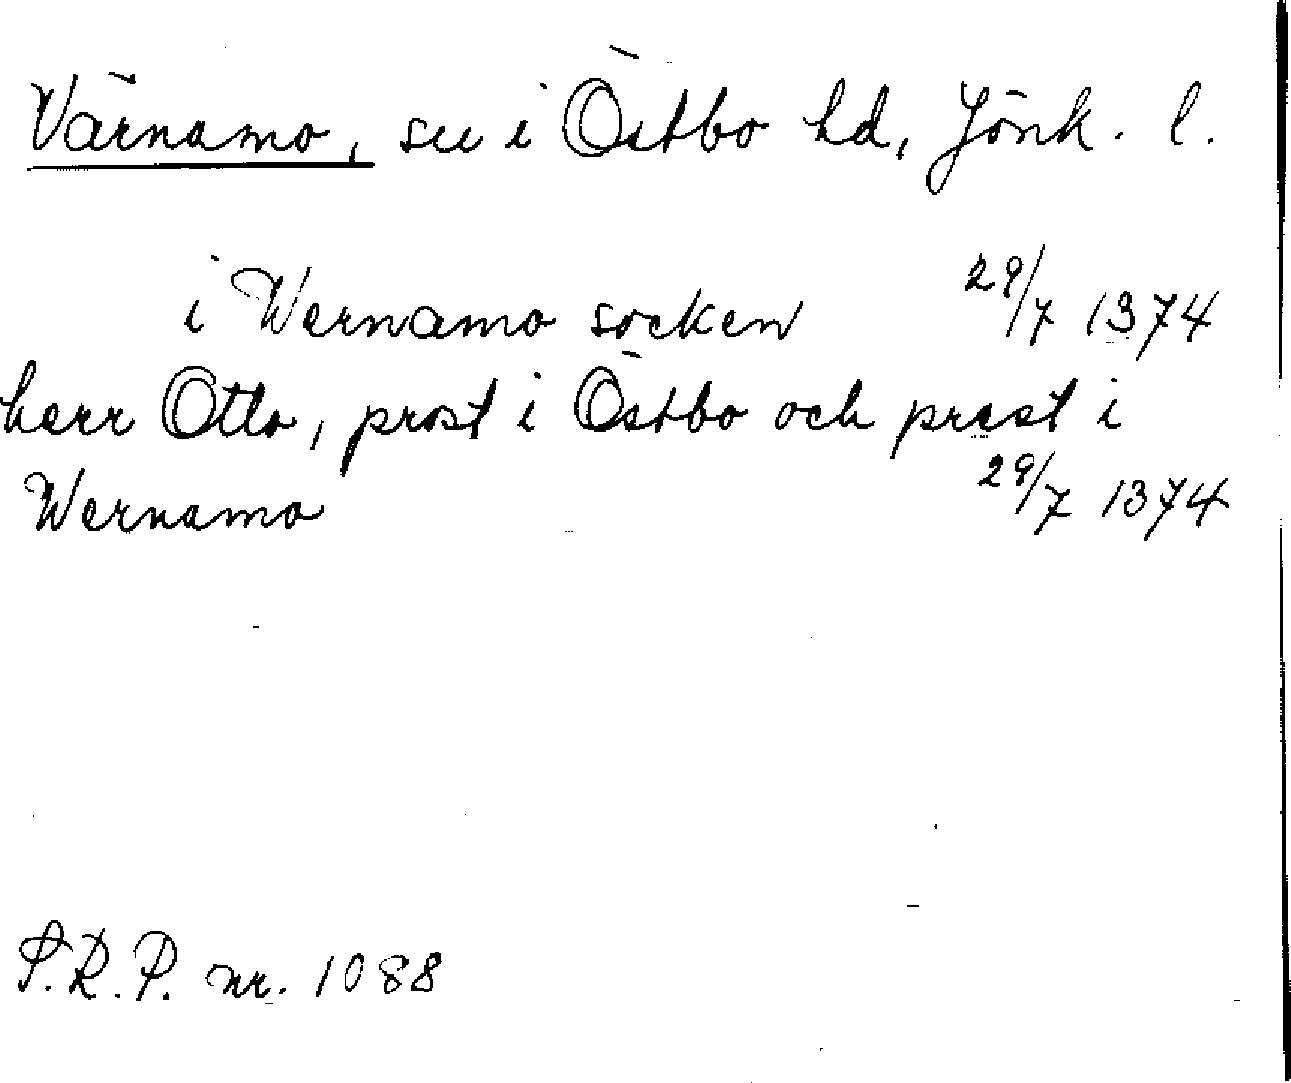 Värnamo, sn i Östbo hd, Jönk. l.
i Wernamo socken 29/7 1374
herr Otto, prost i Östbo och præst i
Wernamo 29/7 1374
P.R.P. nr. 1088